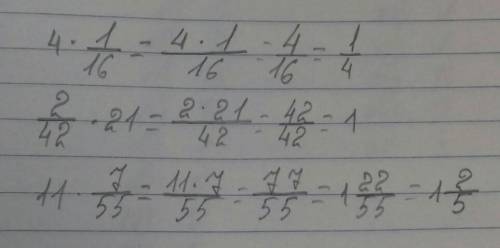 4 · 1/16 = 4 · 1/16 = 4/16 = 1/4
2/42 · 21 = 2 · 21/42 = 42/42 = 1
11 · 7/55 = 11 · 7/55 = 77/55 = 1 22/55 = 1 2/5